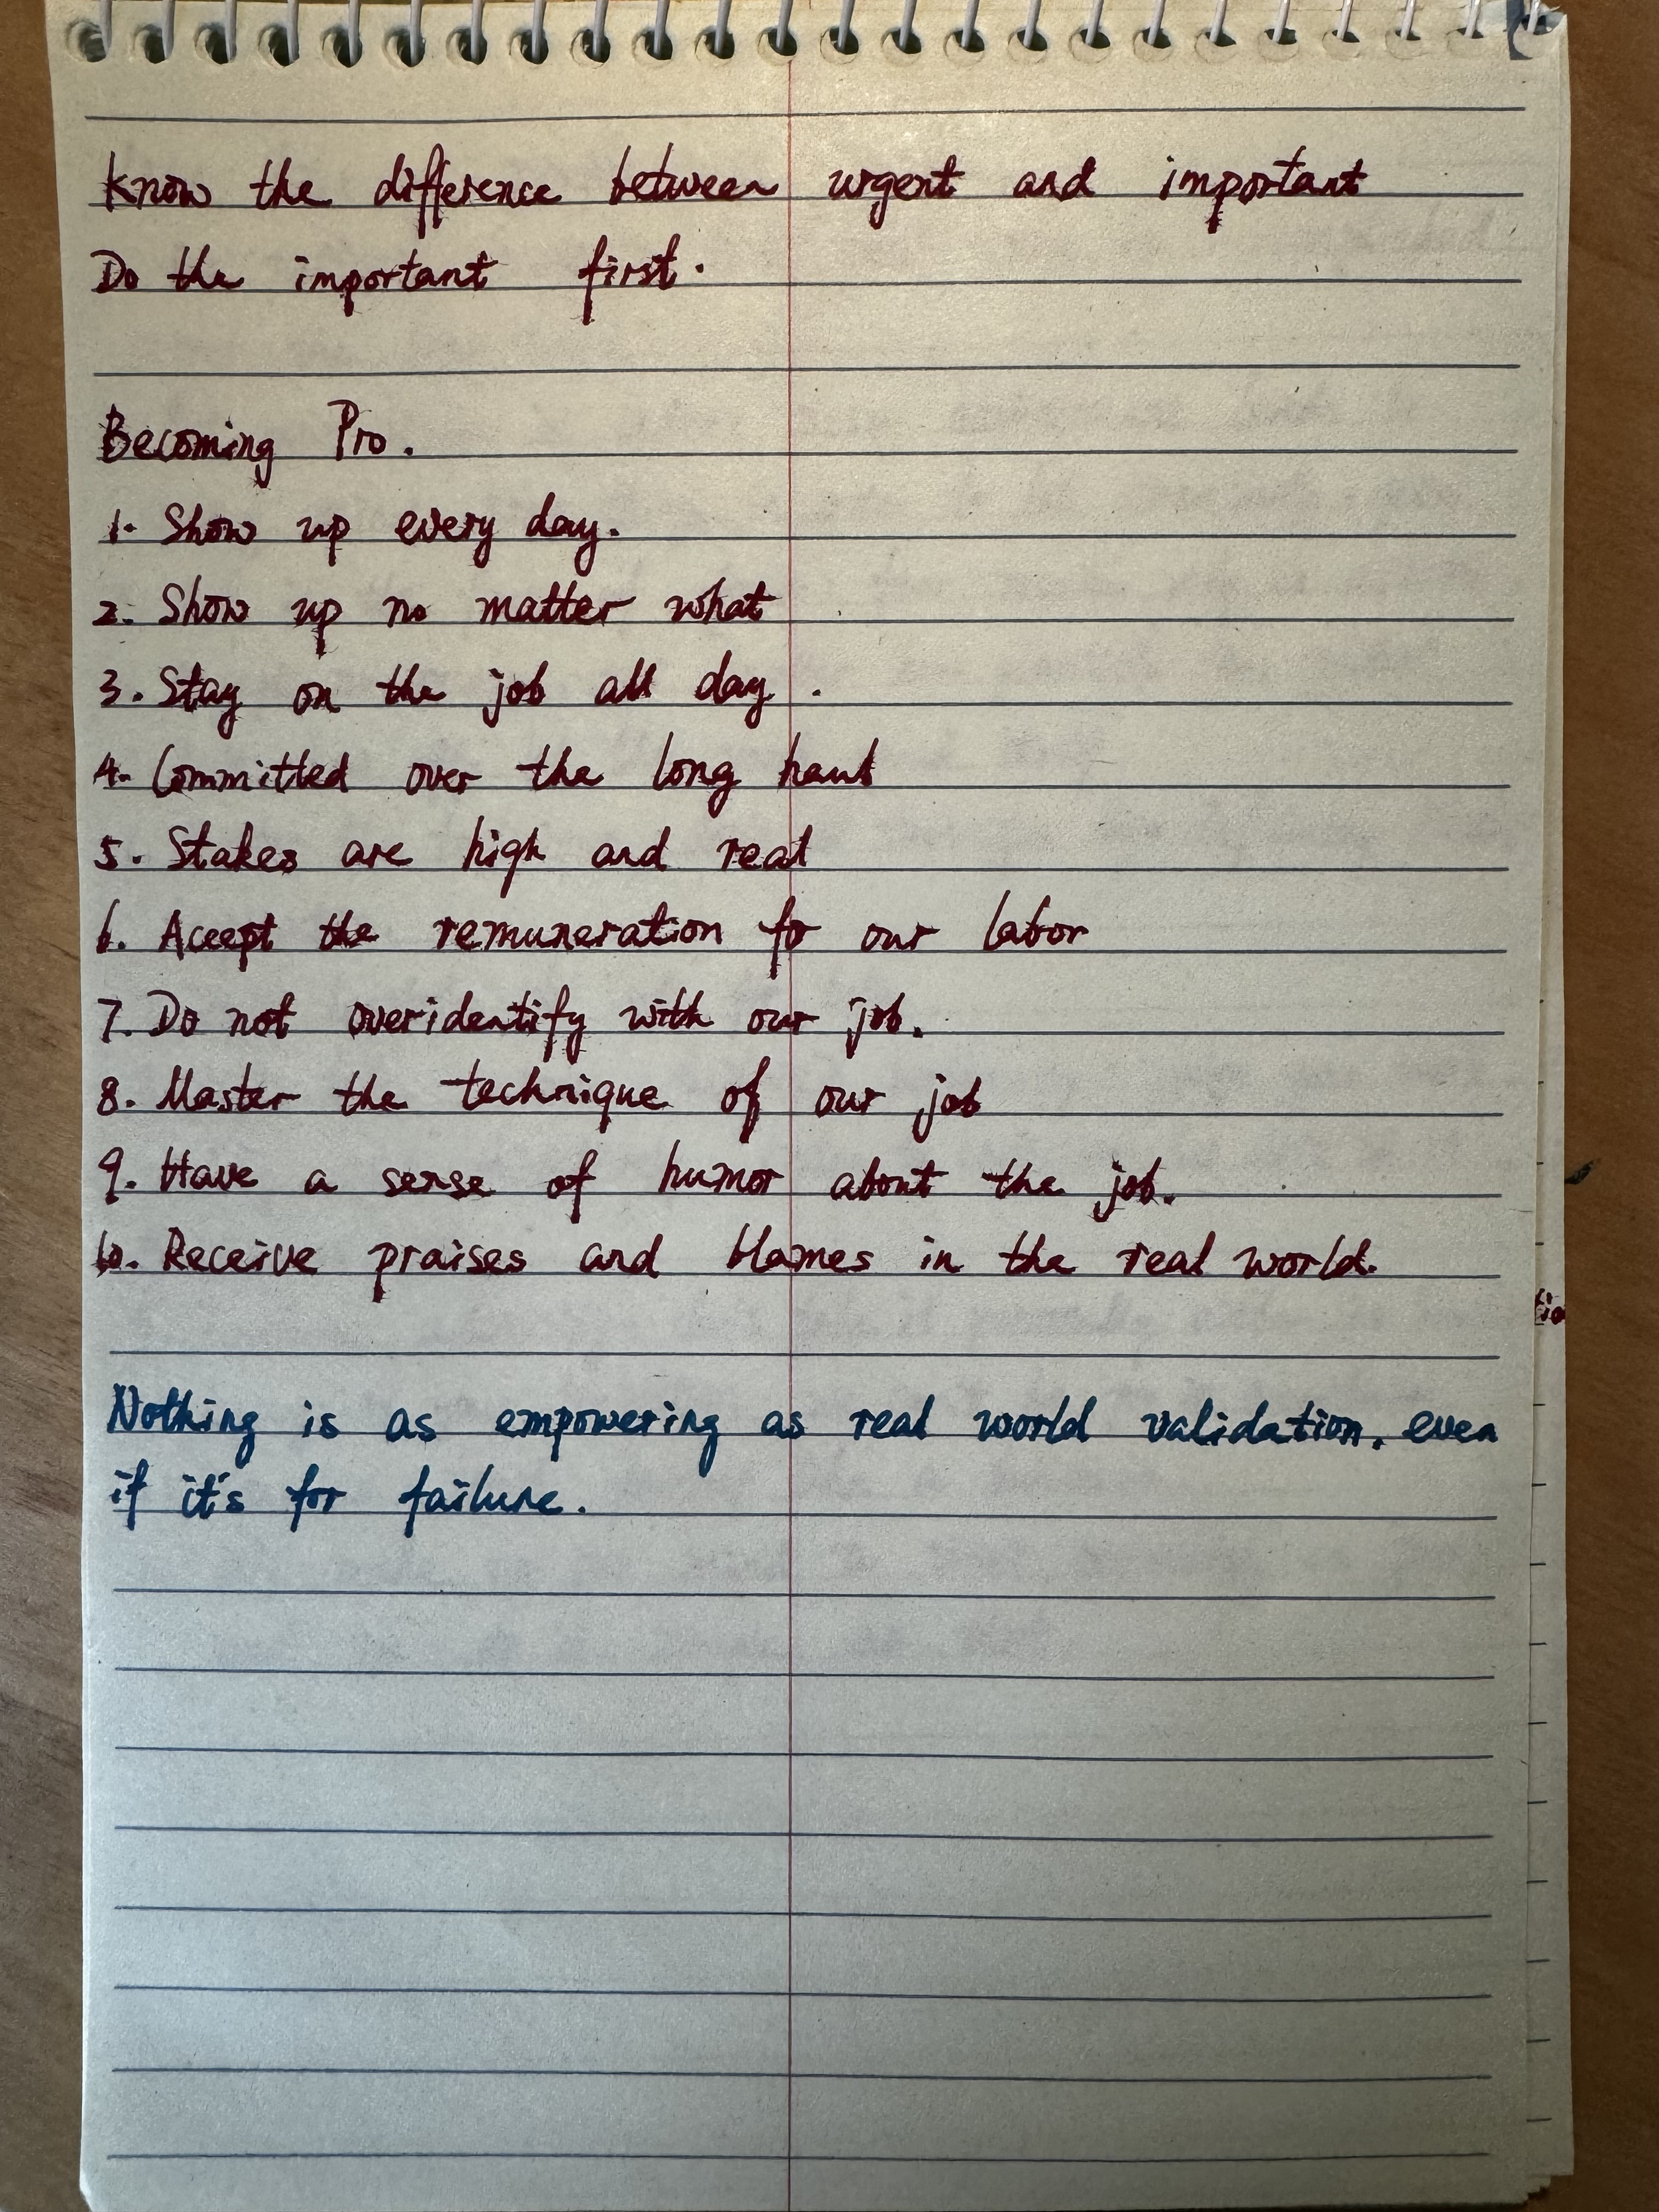 Know the difference between urgent and important
Do the important first.
Becoming Pro.
1. Show up every day.
2. Show up no matter what
3. Stay on the job all day.
4. Committed over the long haul
5. Stakes are high and real
6. Accept the remuneration for our labor
7. Do not overidentify with our job.
8. Master the technique of our job
9. Have a sense of humor about the job.
10. Receive praises and blames in the real world.
Nothing is as empowering as real world validation, even
if it's for failure.